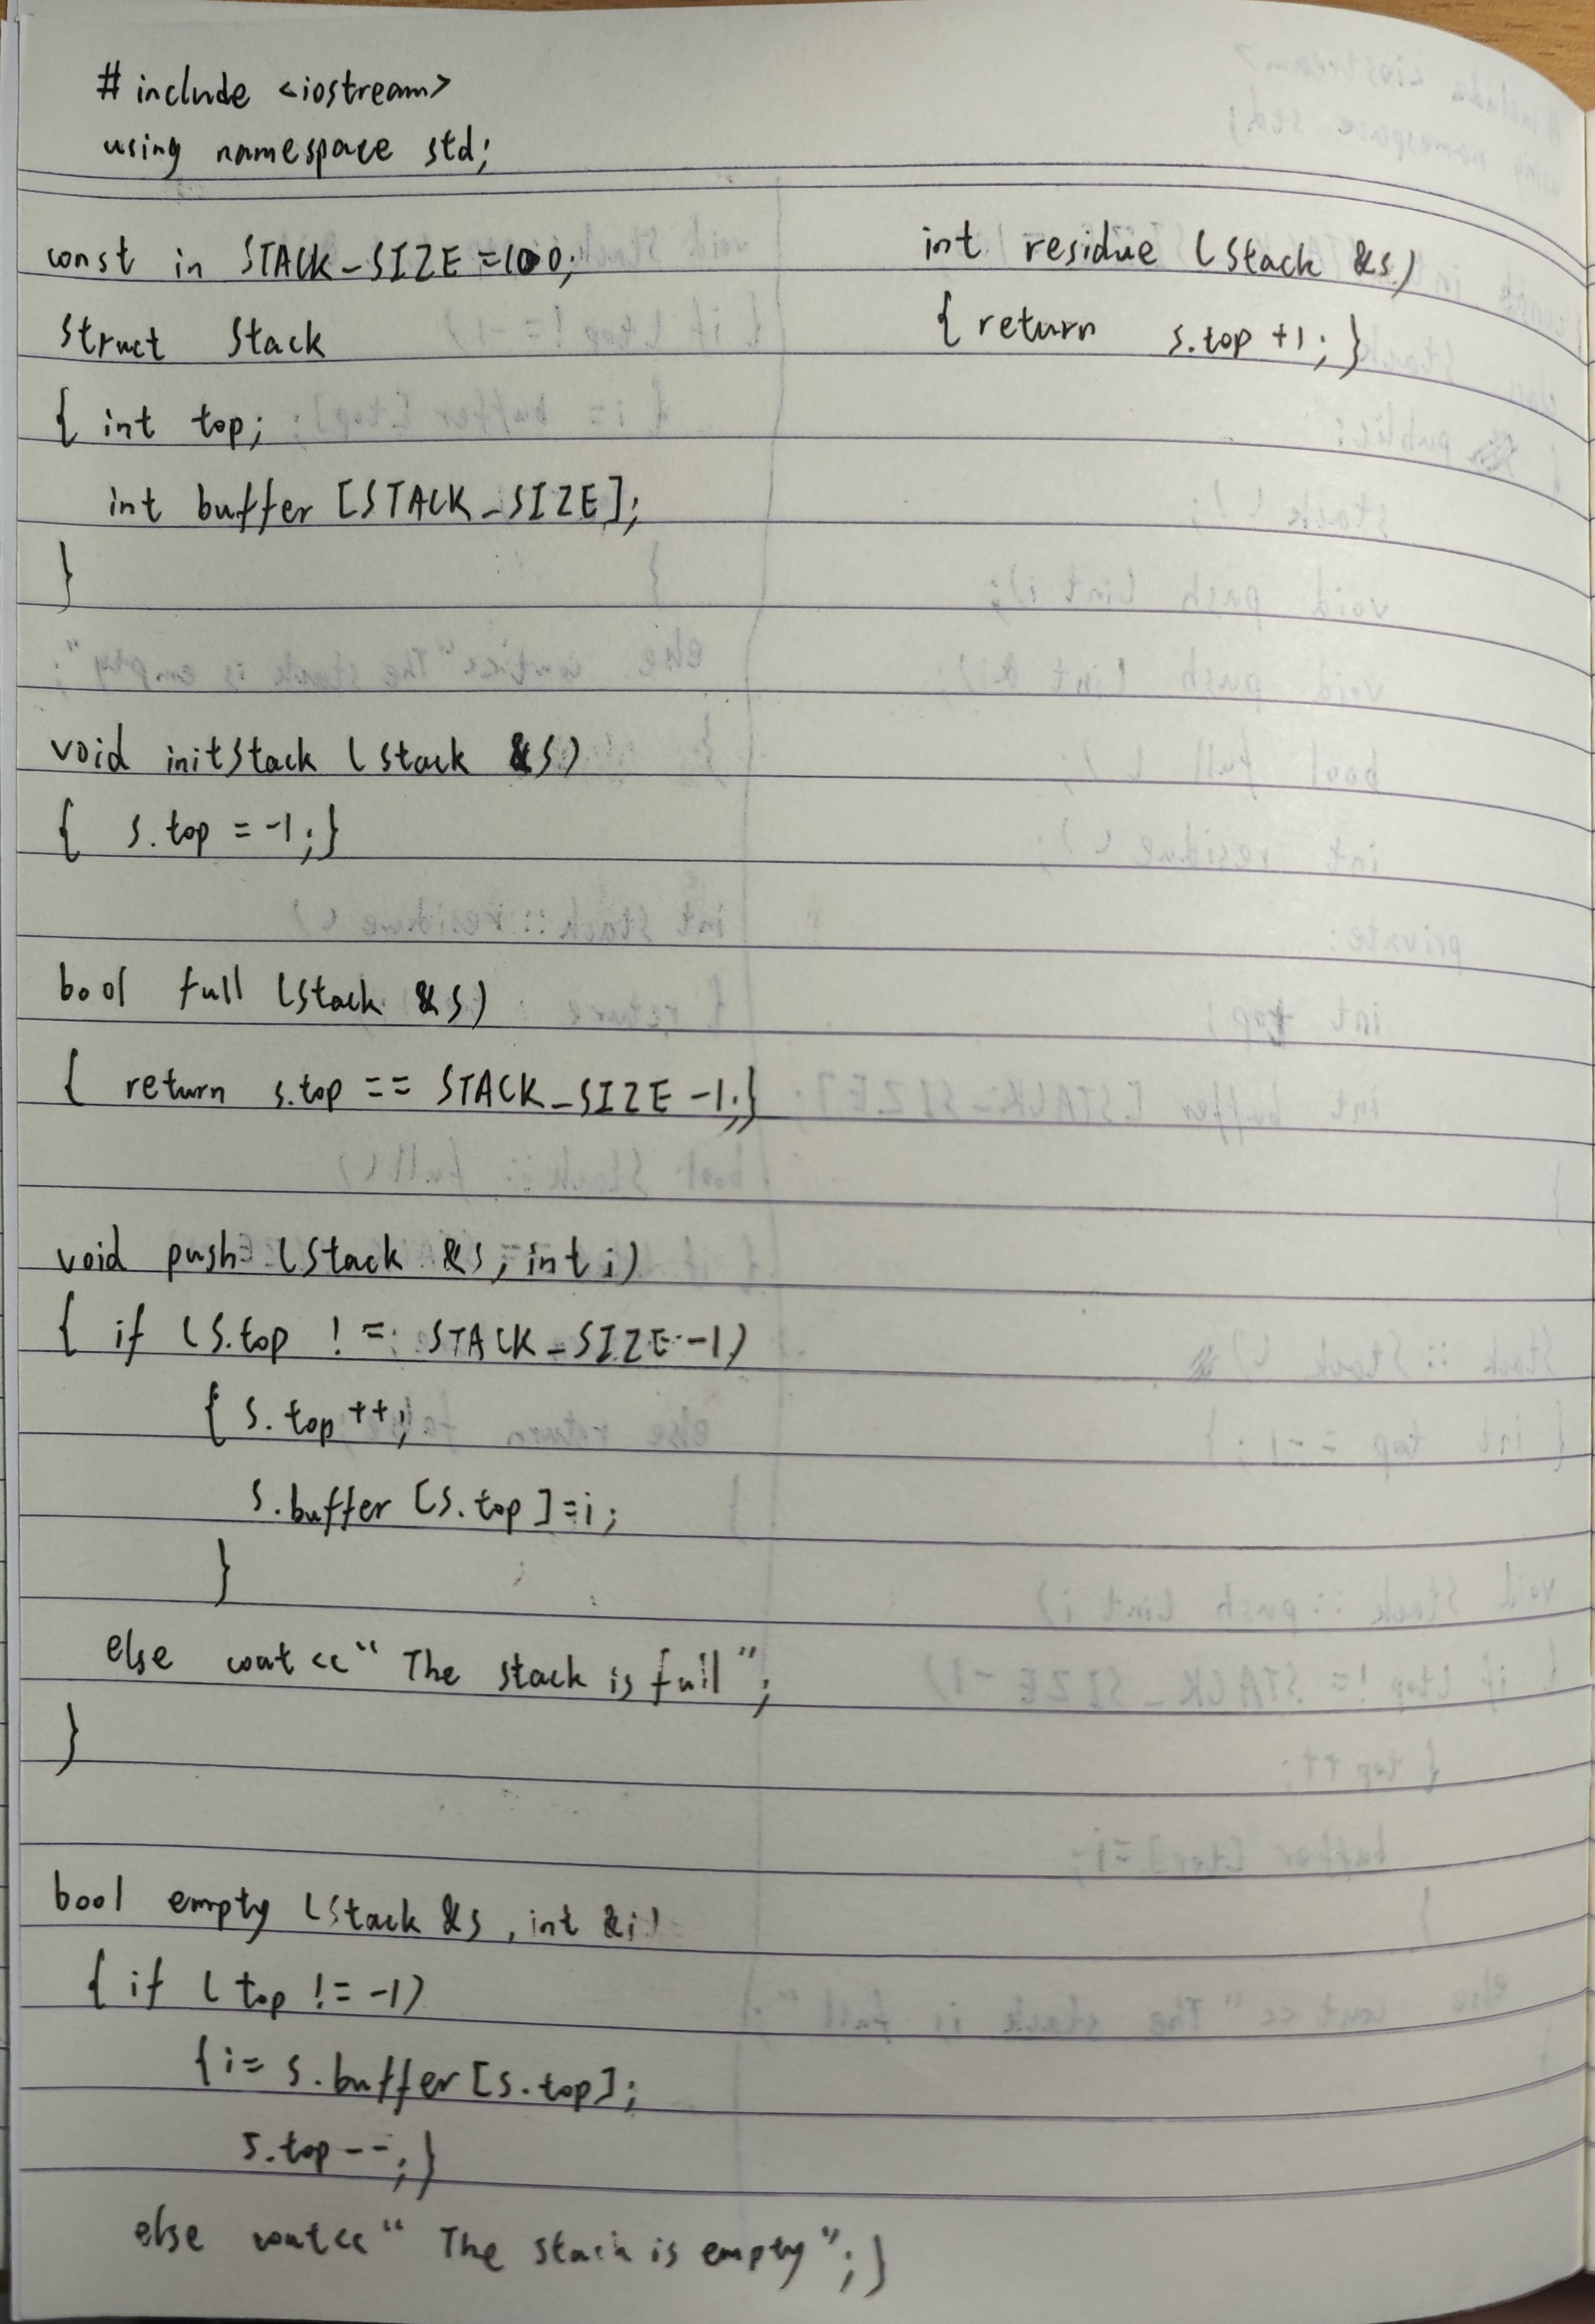 #include <iostream>
using namespace std;
const in STACK_SIZE=100;
struct Stack
{ int top;
int buffer [STACK_SIZE];
}
void initStack (Stack &s)
{ s.top = -1;}
bool full (Stack &s)
{ return s.top == STACK_SIZE -1;}
void push (Stack &s, int i)
{ if (s.top != STACK_SIZE -1)
{ s.top ++;
s.buffer [s.top]=i;
}
else cout<<"The stack is full";
}
bool empty (Stack &s, int &i)
{ if (top != -1)
{i= s.buffer [s.top];
s.top--;}
else cout<<"The stack is empty";}
int residue (Stack &s)
{ return s.top +1; }